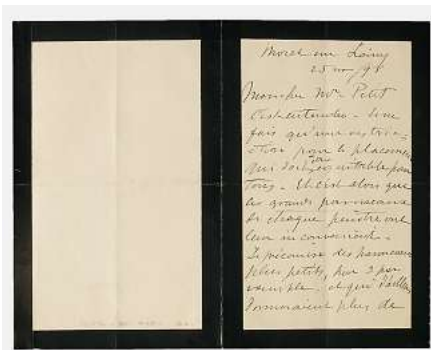 Moret sur Loing
25 nov/98
Mon cher Mr Petit
C'est entendu - Une
fois qu'une
pour le placement
qui doit être équitable pour
tous - Et c'est alors que
les grands panneaux
de chaque peintre ont
leur inconvénient -
Je préconise des panneaux
plus petits, par 3 par
exemple, et qui d'ailleurs
donneraient plus de